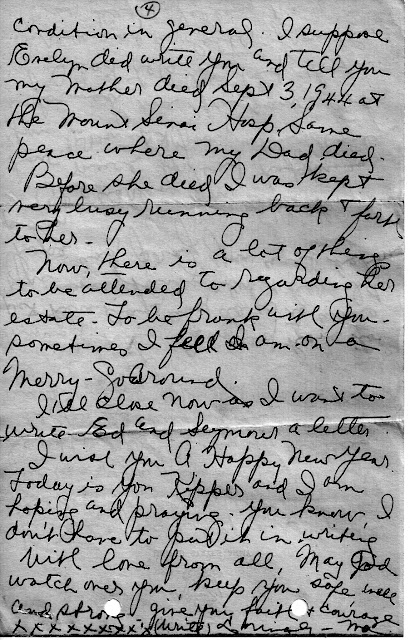 4
condition in general. I suppose
Evelyn did write you and tell you
my Mother died Sept 3, 1944 at
the Mount Sinai Hosp. Same
peace where my Dad died.
Before she died I was kept
very busy running back & forth
to her.
Now, there is a lot of things
to be attended to regarding her
estate. To be frank with you -
sometimes I feel I am on a
Merry-Go Around.
I'll close now as I want to
write Ed and Seymour a letter.
I wish you A Happy New Year.
Today is Yon Kipper and I am
hoping and praying. You know, I
don't have to put it in writing
With love from all, May God
watch over you, keep you safe well
and strong, give you faith & courage
x x x x x x x x x Write